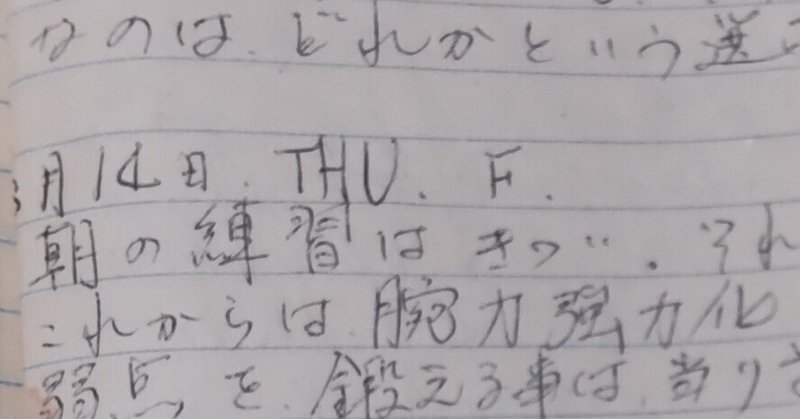 なのは、どれかという選
月14日. THU. F.
朝の練習はきつい. それ
これからは腕力強力化
弱点を、鍛える事は、当り